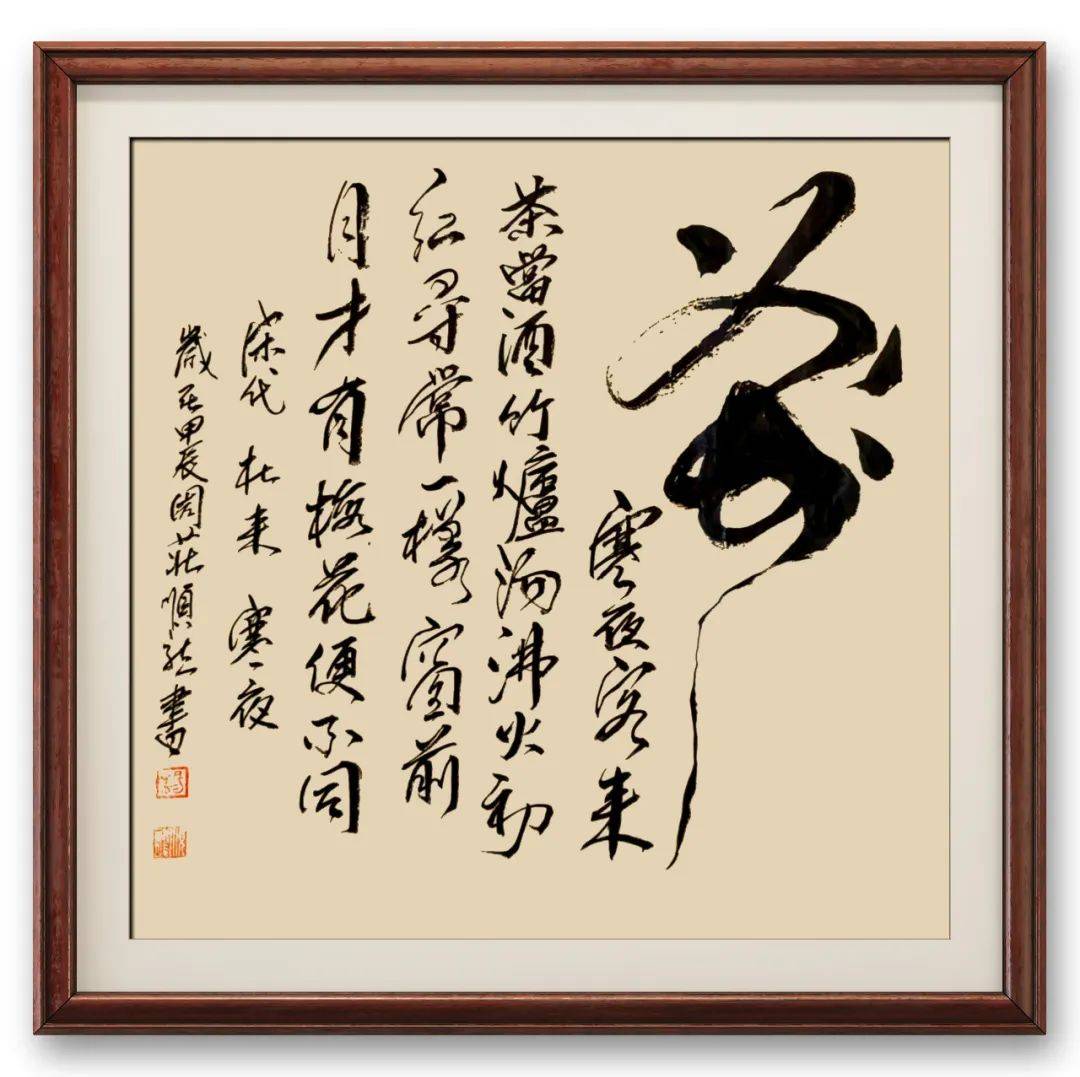 寒夜客来
茶當酒竹爐湯沸火初
紅尋常一樣窗前
月才有梅花便不同
宋代 杜来 寒夜
歲在甲辰周莊順龍書